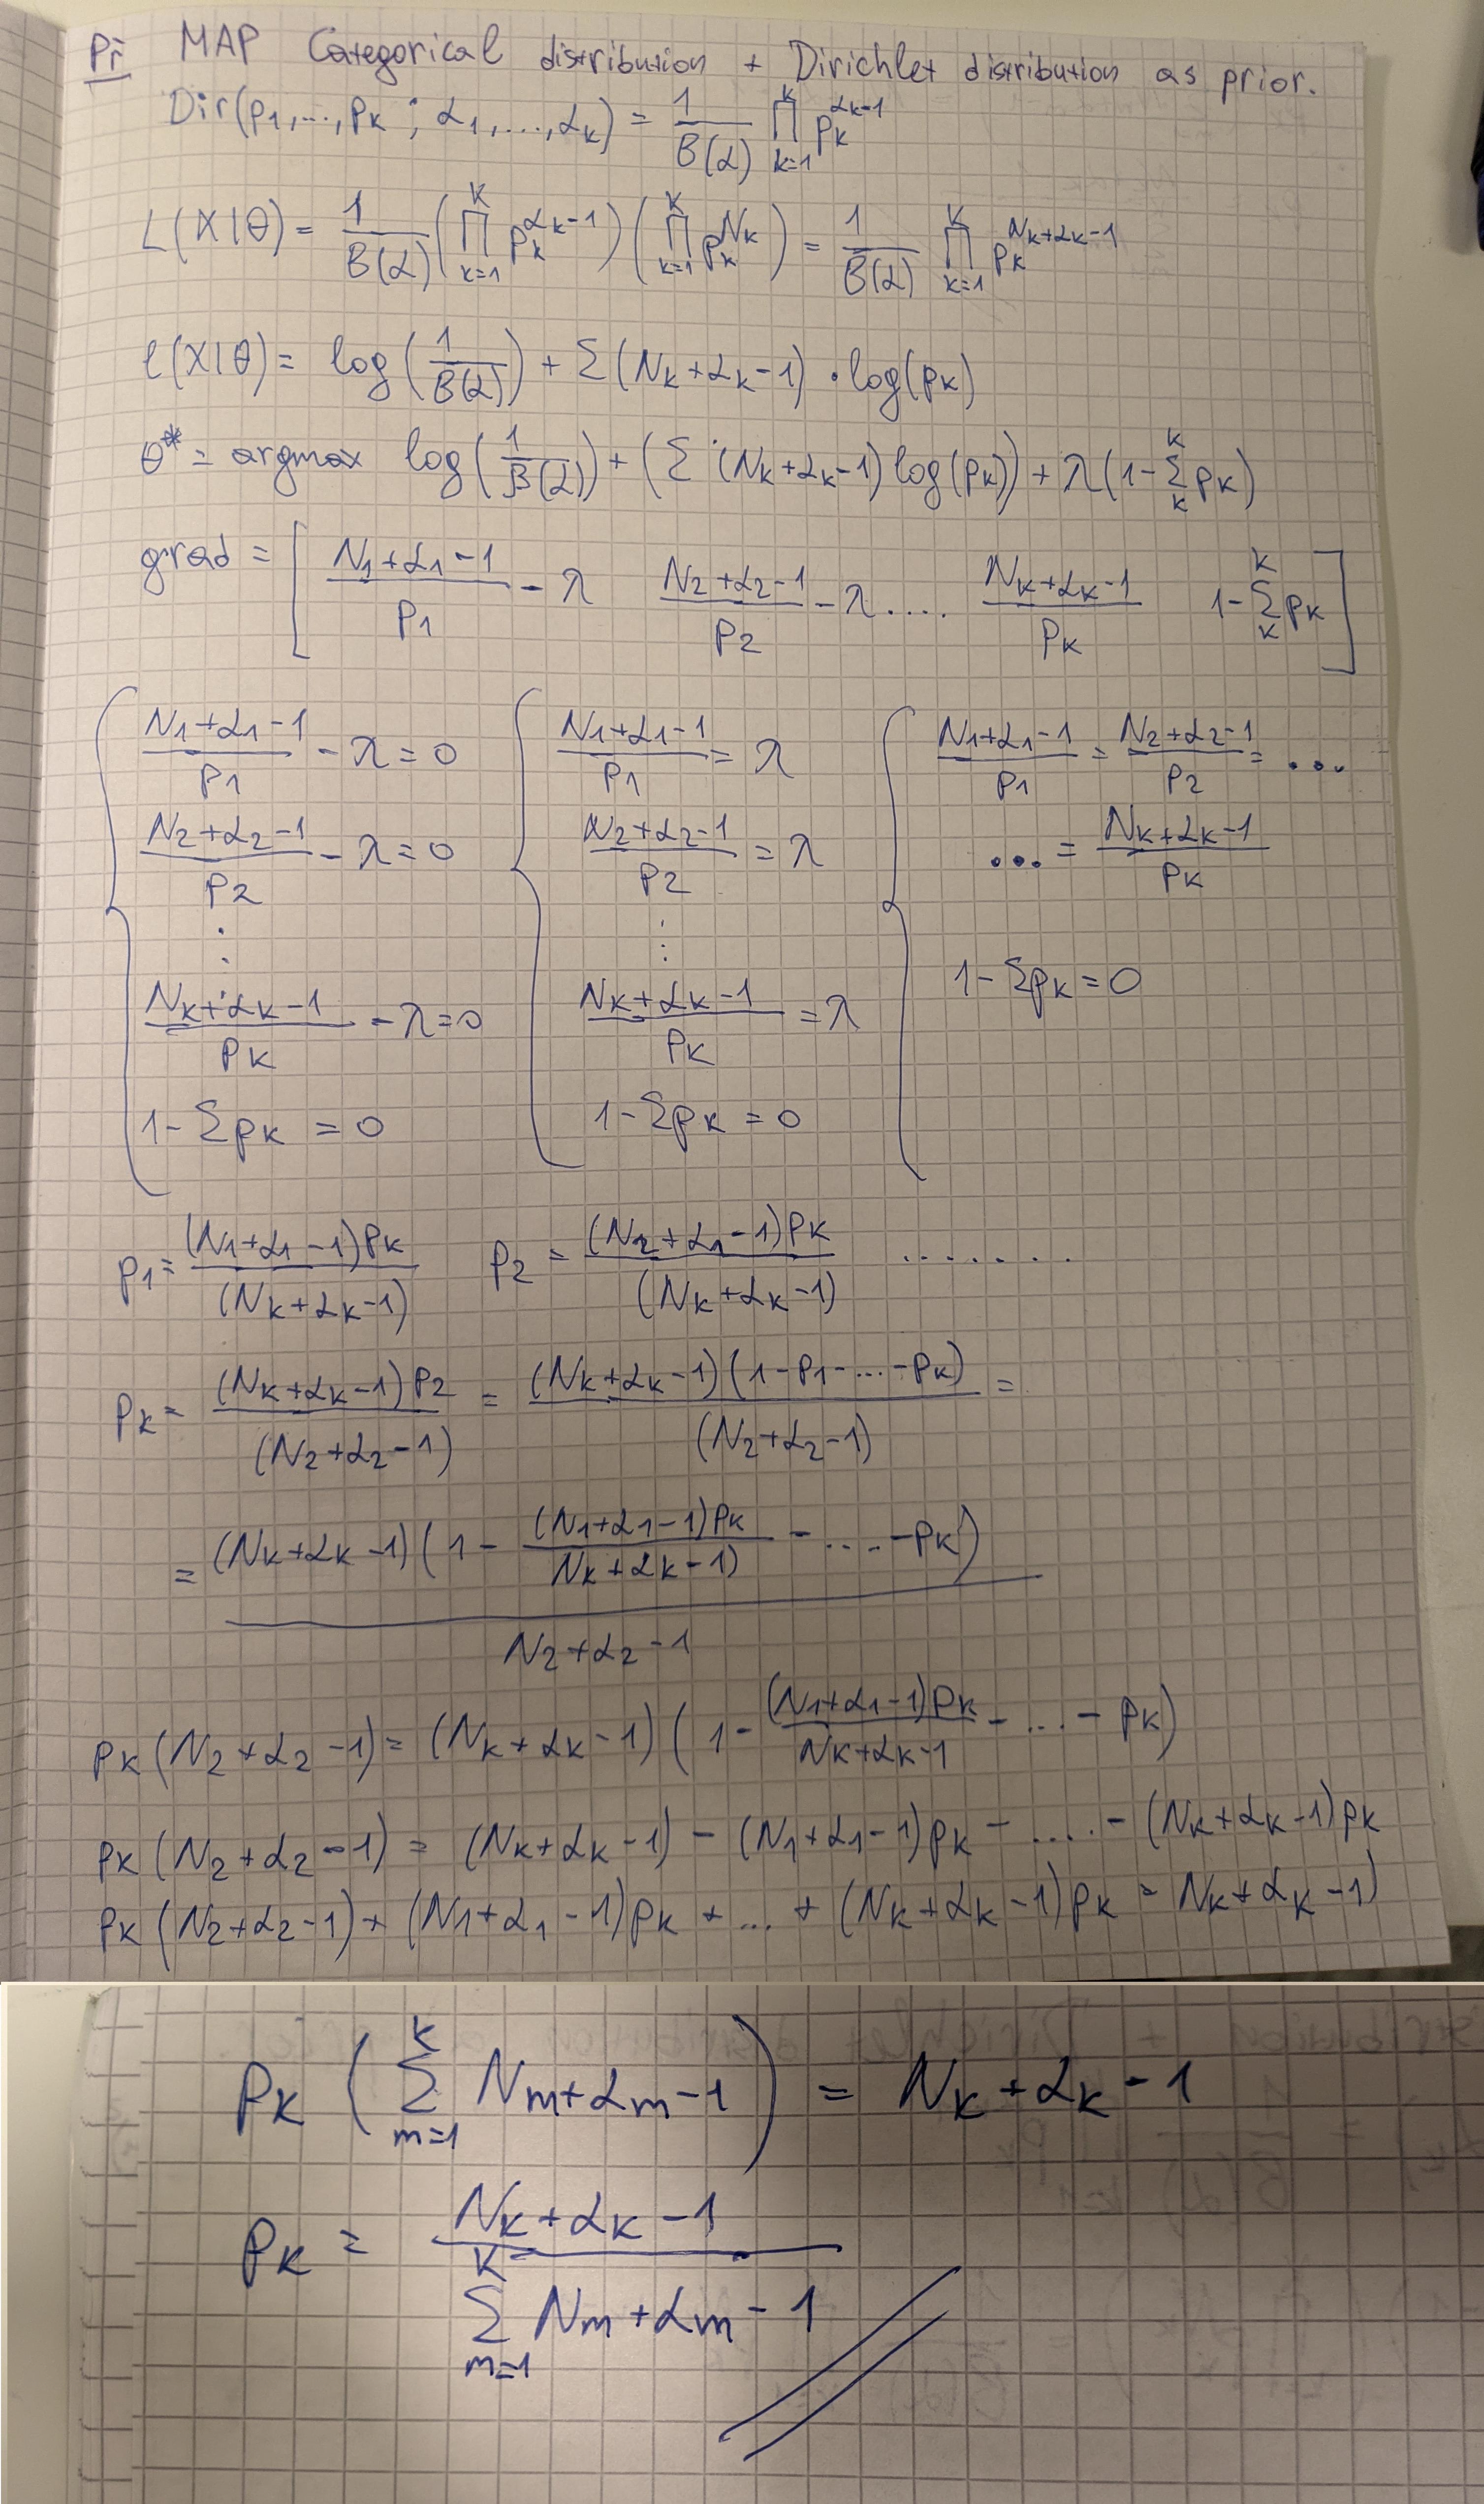 Př MAP Categorical distribution + Dirichlet distribution as prior.
Dir(p₁,...,p_K ; α₁,...,α_k) = 1/B(α) ∏_{k=1}^{K} p_k^{α_k-1}
L(X|θ) = 1/B(α) (∏_{k=1}^{K} p_k^{α_k-1}) (∏_{k=1}^{K} p_k^{N_k}) = 1/B(α) ∏_{k=1}^{K} p_k^{N_k+α_k-1}
ℓ(X|θ) = log(1/B(α)) + Σ(N_k+α_k-1) · log(p_k)
θ* = argmax log(1/B(α)) + (Σ (N_k+α_k-1) log(p_k)) + λ(1-Σ_k^K p_k)
grad = [ (N₁+α₁-1)/p₁ - λ (N₂+α₂-1)/p₂ - λ .... (N_k+α_k-1)/p_k 1-Σ_k^K p_k ]
{ (N₁+α₁-1)/p₁ - λ = 0 { (N₁+α₁-1)/p₁ = λ { (N₁+α₁-1)/p₁ = (N₂+α₂-1)/p₂ = ...
(N₂+α₂-1)/p₂ - λ = 0 (N₂+α₂-1)/p₂ = λ ... = (N_k+α_k-1)/p_k
⋮ ⋮
(N_k+α_k-1)/p_k - λ = 0 (N_k+α_k-1)/p_k = λ 1-Σp_k = 0
1-Σp_k = 0 1-Σp_k = 0
p₁ = (N₁+α₁-1)p_k/(N_k+α_k-1) p₂ = (N₂+α₂-1)p_k/(N_k+α_k-1) .......
p_k = (N_k+α_k-1)p₂/(N₂+α₂-1) = (N_k+α_k-1)(1-p₁-...-p_k)/(N₂+α₂-1) =
= (N_k+α_k-1)(1 - (N₁+α₁-1)p_k/N_k+α_k-1) - .... -p_k)/N₂+α₂-1
p_k(N₂+α₂-1) = (N_k+α_k-1)(1 - (N₁+α₁-1)p_k/N_k+α_k-1 - ... - p_k)
p_k(N₂+α₂-1) = (N_k+α_k-1) - (N₁+α₁-1)p_k - ..... - (N_k+α_k-1)p_k
p_k(N₂+α₂-1) + (N₁+α₁-1)p_k + ... + (N_k+α_k-1)p_k = N_k+α_k-1)
p_k (Σ_{m=1}^{K} N_m+α_m-1) = N_k+α_k-1
p_k = N_k+α_k-1 / Σ_{m=1}^{K} N_m+α_m-1